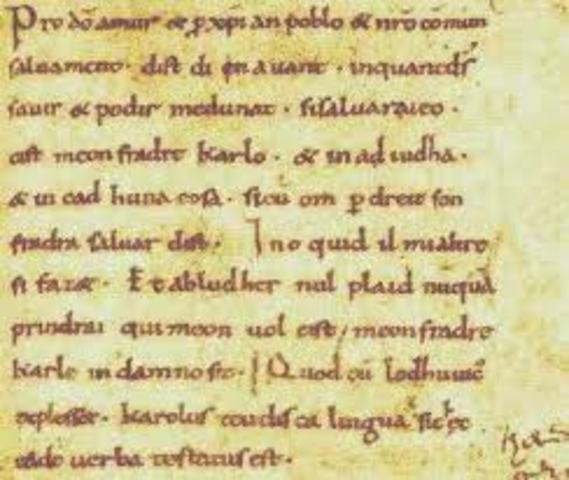 Pro dō amur & ꝓ xp̄ian poblo & nrō cōmun
saluament. dist di en auant. inquantdſ
sauir & podir medunat. sisaluaraieo.
cist meon fradre karlo. & in ad iudha.
& in cad huna cosa. sicū om ꝑ dreit son
fradra saluar dist. Ino quid il mialtre
si faz&. Et abludher nul plaid nūquā
prindrai qui meon uol cist meonfradre
karle in damno sit. Quod cū lodhuuic
explesset. karolus teudisca lingua sic
eadē uerba testatus est.